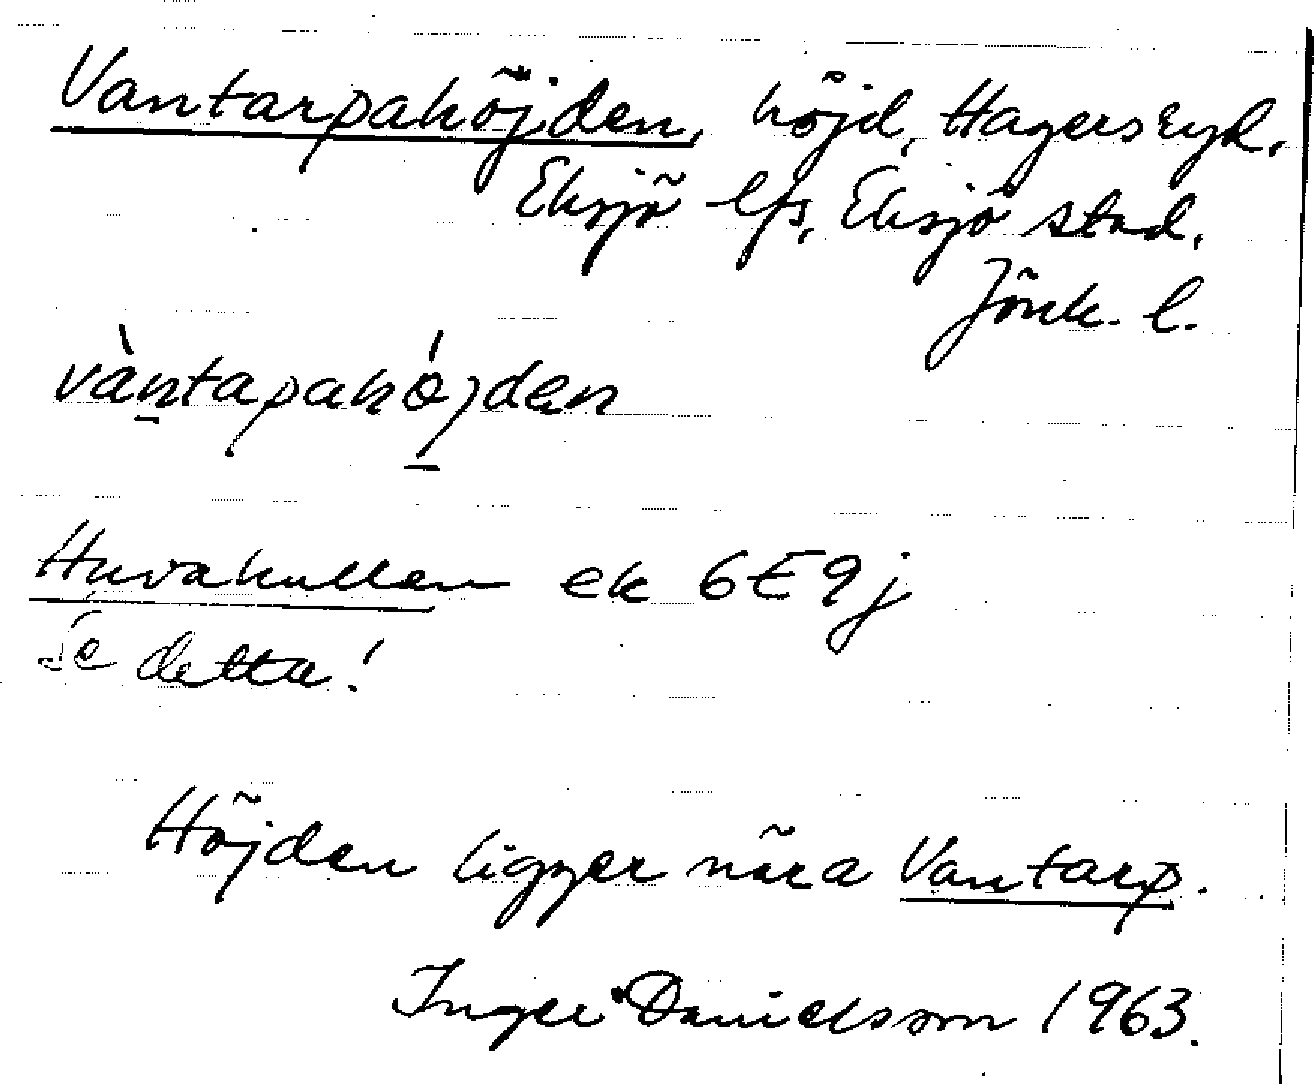 Vantarpahöjden, höjd, Hagersryd,
Eksjö lfs, Eksjö stad,
Jönk. l.
vàntapahó̱jden
Huvakullen ek 6E9j
Se detta!
Höjden ligger nära Vantarp.
Inger Danielsson 1963.